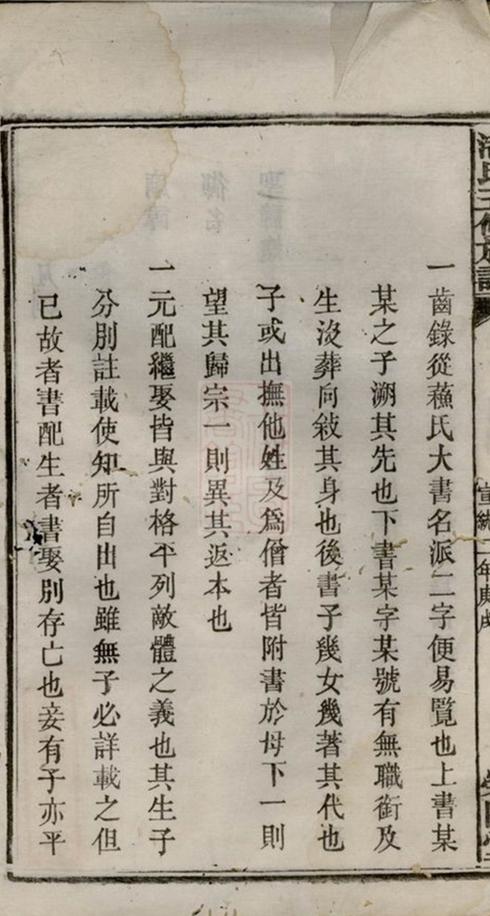 一齒錄從蘓氏大書名派二字便易覽也上書某
某之子溯其先也下書某字某號有無職銜及
生歿葬向敍其身也後書子幾女幾著其代也
子或出撫他姓及爲僧者皆附書於母下一則
望其歸宗一則異其返本也
一元配繼娶皆與對格平列敵體之義也其生子
分別註載使知所自出也雖無子必詳載之但
已故者書配生者書娶別存亡也妾有子亦平